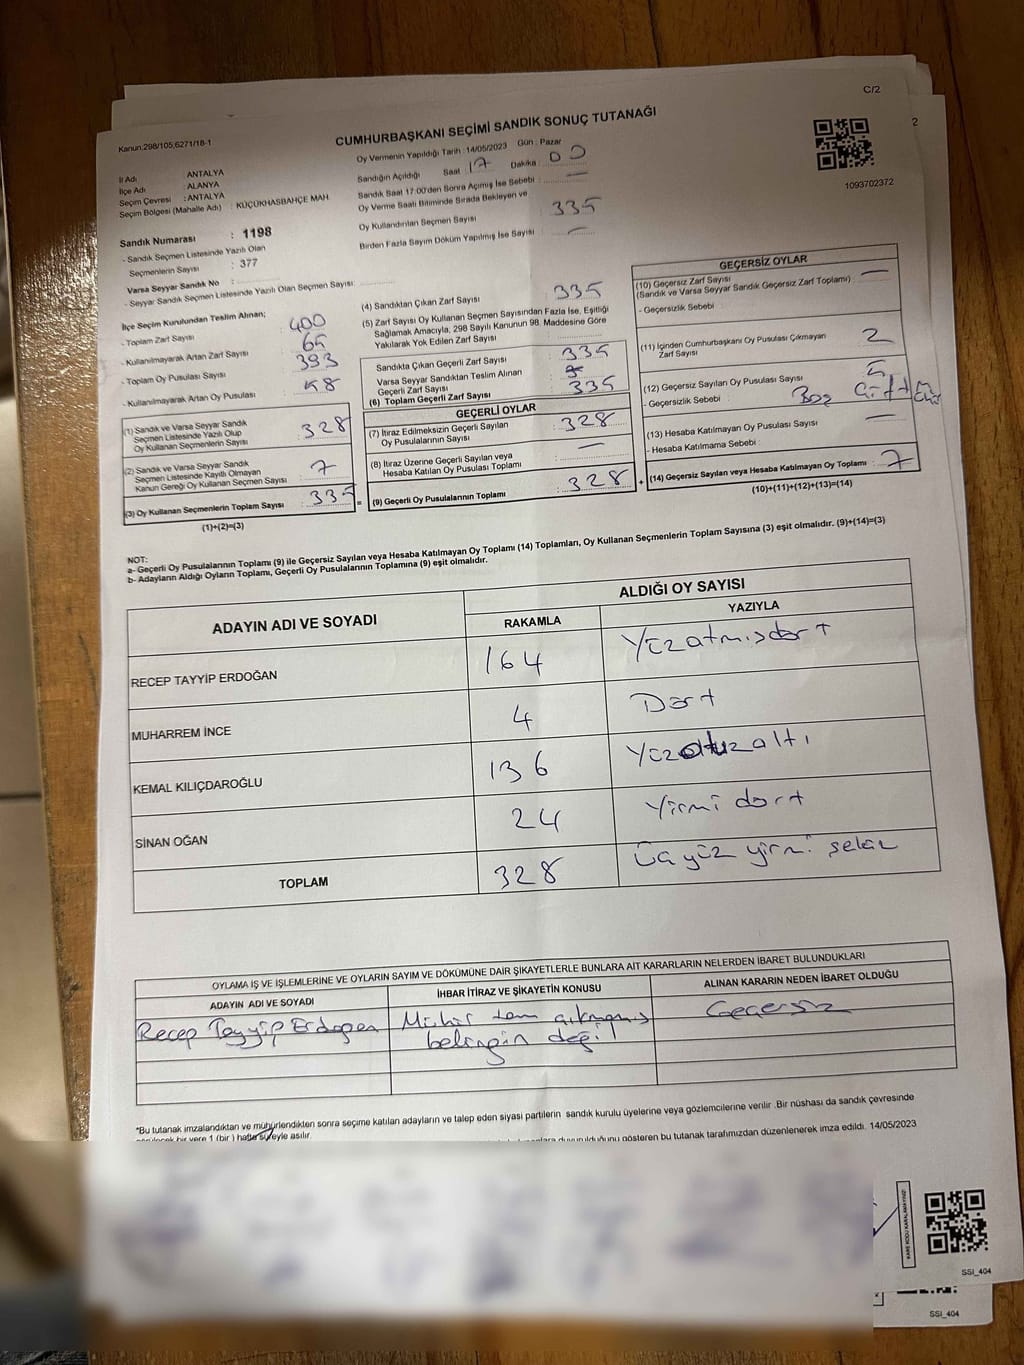 C/2
2
Kanun:298/105;6271/18-1
CUMHURBAŞKANI SEÇİMİ SANDIK SONUÇ TUTANAĞI
1093702372
İl Adı : ANTALYA
İlçe Adı : ALANYA
Seçim Çevresi : ANTALYA
Seçim Bölgesi (Mahalle Adı) : KÜÇÜKHASBAHÇE MAH
Sandık Numarası : 1198
- Sandık Seçmen Listesinde Yazılı Olan
Seçmenlerin Sayısı : 377
Varsa Seyyar Sandık No :
- Seyyar Sandık Seçmen Listesinde Yazılı Olan Seçmen Sayısı:
Oy Vermenin Yapıldığı Tarih : 14/05/2023 Gün : Pazar
Sandığın Açıldığı Saat : 17 Dakika : 00
Sandık Saat 17:00'den Sonra Açımış İse Sebebi : —
Oy Verme Saati Bitiminde Sırada Bekleyen ve
Oy Kullandırılan Seçmen Sayısı : 335
Birden Fazla Sayım Döküm Yapılmış İse Sayısı : —
İlçe Seçim Kurulundan Teslim Alınan;
- Toplam Zarf Sayısı : 400
- Kullanılmayarak Artan Zarf Sayısı : 65
- Toplam Oy Pusulası Sayısı : 393
- Kullanılmayarak Artan Oy Pusulası : 58
(1) Sandık ve Varsa Seyyar Sandık
Seçmen Listesinde Yazılı Olup
Oy Kullanan Seçmenlerin Sayısı : 328
(2) Sandık ve Varsa Seyyar Sandık
Seçmen Listesinde Kayıtlı Olmayan
Kanun Gereği Oy Kullanan Seçmen Sayısı : 7
(3) Oy Kullanan Seçmenlerin Toplam Sayısı : 335
(1)+(2)=(3)
(4) Sandıktan Çıkan Zarf Sayısı : 335
(5) Zarf Sayısı Oy Kullanan Seçmen Sayısından Fazla İse, Eşitliği
Sağlamak Amacıyla, 298 Sayılı Kanunun 98. Maddesine Göre
Yakılarak Yok Edilen Zarf Sayısı :
Sandıkta Çıkan Geçerli Zarf Sayısı : 335
Varsa Seyyar Sandıktan Teslim Alınan
Geçerli Zarf Sayısı :
(6) Toplam Geçerli Zarf Sayısı : 335
GEÇERLİ OYLAR
(7) İtiraz Edilmeksizin Geçerli Sayılan
Oy Pusulalarının Sayısı : 328
(8) İtiraz Üzerine Geçerli Sayılan veya
Hesaba Katılan Oy Pusulası Toplamı : —
(9) Geçerli Oy Pusulalarının Toplamı : 328
GEÇERSİZ OYLAR
(10) Geçersiz Zarf Sayısı : —
(Sandık ve Varsa Seyyar Sandık Geçersiz Zarf Toplamı)
- Geçersizlik Sebebi :
(11) İçinden Cumhurbaşkanı Oy Pusulası Çıkmayan
Zarf Sayısı : 2
(12) Geçersiz Sayılan Oy Pusulası Sayısı : 5
- Geçersizlik Sebebi : Boş
(13) Hesaba Katılmayan Oy Pusulası Sayısı : —
- Hesaba Katılmama Sebebi :
(14) Geçersiz Sayılan veya Hesaba Katılmayan Oy Toplamı : 7
(10)+(11)+(12)+(13)=(14)
NOT:
a- Geçerli Oy Pusulalarının Toplamı (9) ile Geçersiz Sayılan veya Hesaba Katılmayan Oy Toplamı (14) Toplamları, Oy Kullanan Seçmenlerin Toplam Sayısına (3) eşit olmalıdır. (9)+(14)=(3)
b- Adayların Aldığı Oyların Toplamı, Geçerli Oy Pusulalarının Toplamına (9) eşit olmalıdır.
ADAYIN ADI VE SOYADI
ALDIĞI OY SAYISI
RAKAMLA YAZIYLA
RECEP TAYYİP ERDOĞAN 164 Yüzatmışdört
MUHARREM İNCE 4 Dört
KEMAL KILIÇDAROĞLU 136 Yüzotuzaltı
SİNAN OĞAN 24 Yirmi dört
TOPLAM 328 üçyüz yirmi sekiz
OYLAMA İŞ VE İŞLEMLERİNE VE OYLARIN SAYIM VE DÖKÜMÜNE DAİR ŞİKAYETLERLE BUNLARA AİT KARARLARIN NELERDEN İBARET BULUNDUKLARI
ADAYIN ADI VE SOYADI İHBAR İTİRAZ VE ŞİKAYETİN KONUSU ALINAN KARARIN NEDEN İBARET OLDUĞU
Recep Tayyip Erdogan Mühür tam çıkmamış Geçersiz
belirgin değil
*Bu tutanak imzalandıktan ve mühürlendikten sonra seçime katılan adayların ve talep eden siyasi partilerin sandık kurulu üyelerine veya gözlemcilerine verilir .Bir nüshası da sandık çevresinde
bir yere 1 (bir ) hafta süreyle asılır.
gösteren bu tutanak tarafımızdan düzenlenerek imza edildi. 14/05/2023
KARE KODU KARALAMAYINIZ!
SSI_404
SSI_404